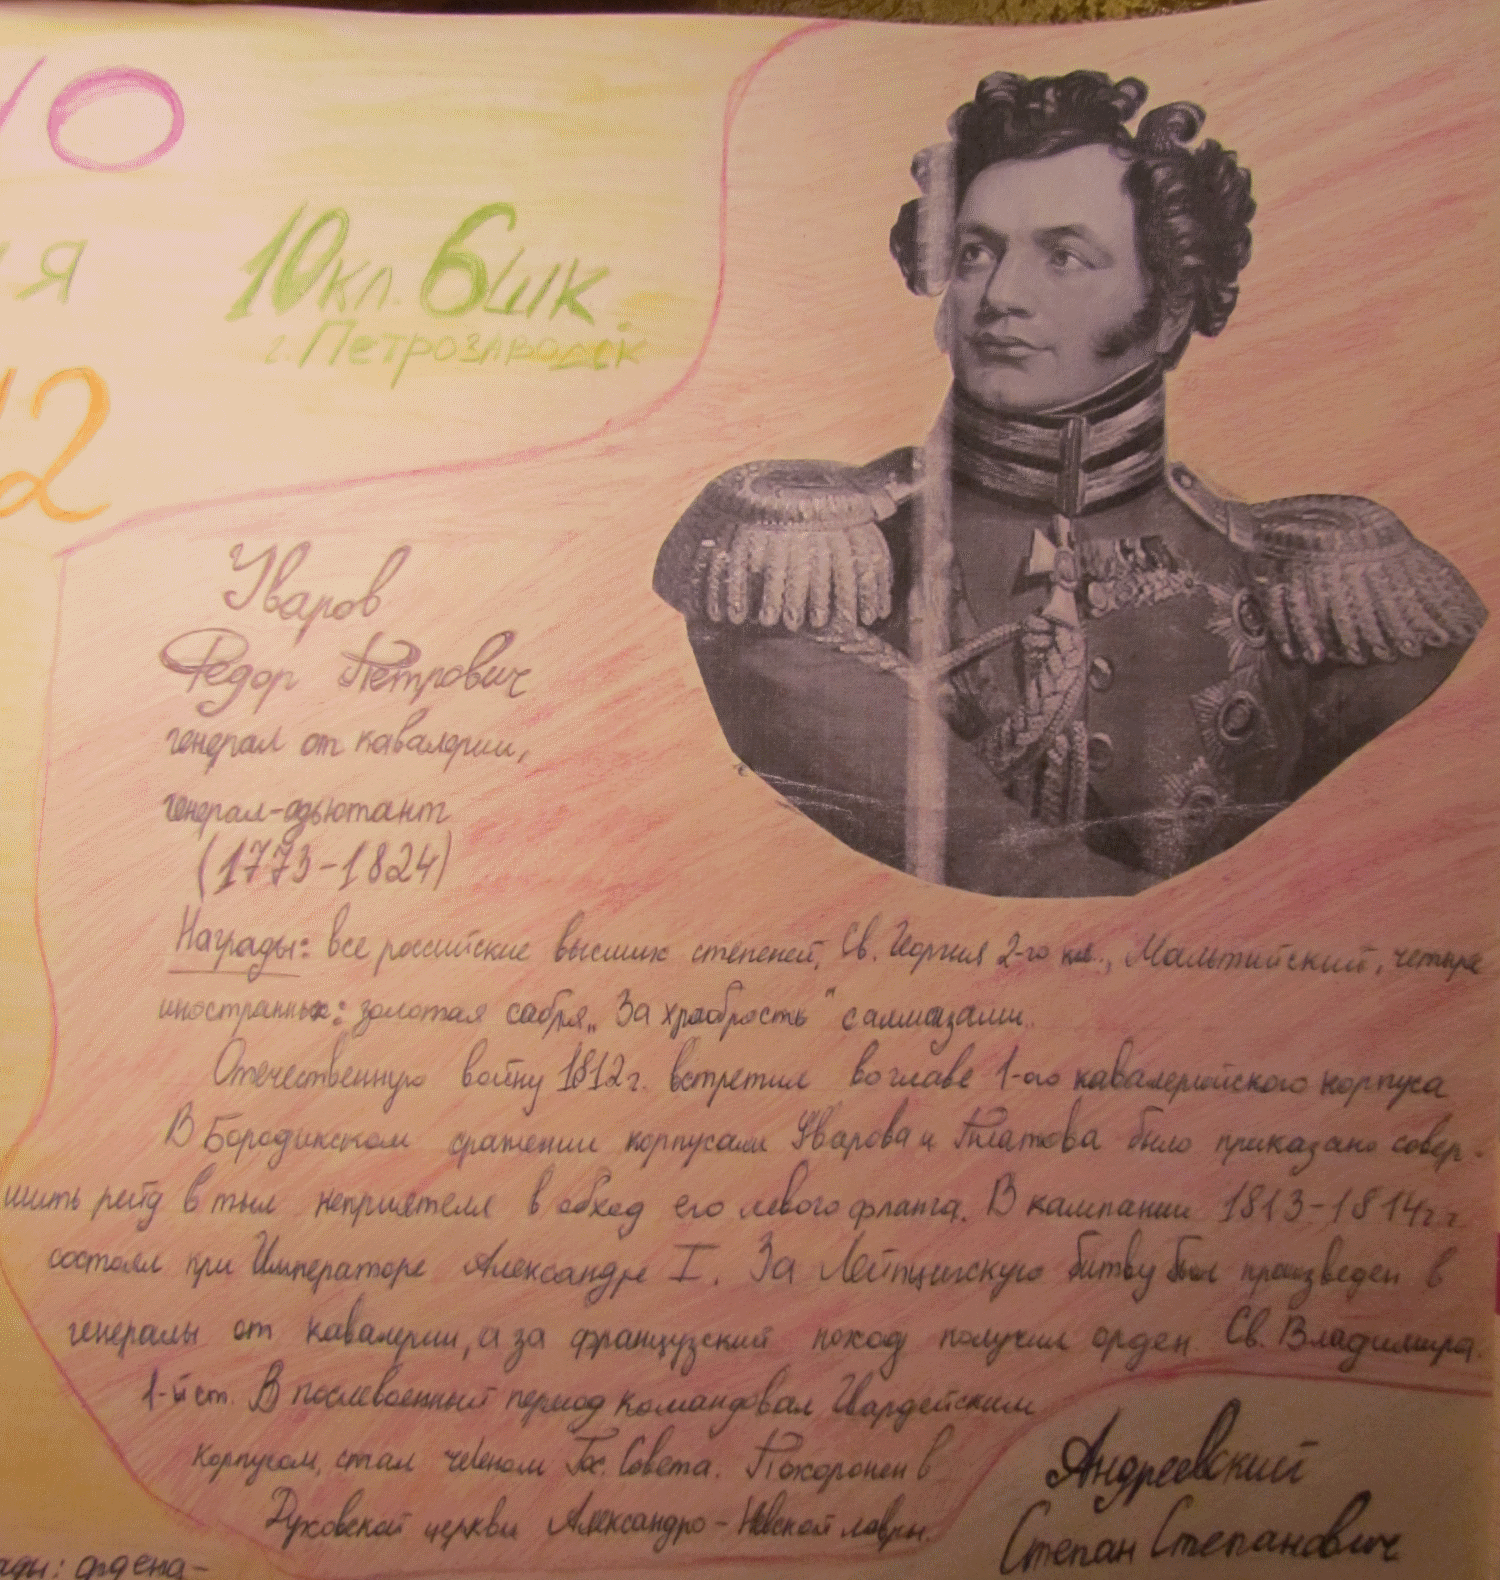 Ю
я
10 кл. 6 шк.
г. Петрозаводск
12
Уваров
Федор Петрович
генерал от кавалерии,
генерал-адьютант
(1773-1824)
Награды: все российские высших степеней, Св. Георгия 2-го кл., Мальтийский, четыре
иностранных: золотая сабля „За храбрость" с алмазами.
Отечественную войну 1812 г. встретил во главе 1-ого кавалерийского корпуса
В Бородинском сражении корпусам Уварова и Платова было приказано совер-
шить рейд в тыл неприятеля в обход его левого фланга. В кампании 1813-1814 г г
состоял при Императоре Александре I. За Лейпцигскую битву был произведен в
генералы от кавалерии, а за французский поход получил орден Св. Владимира
1-й ст. В послевоенный период командовал Гвардейским
корпусом, стал членом Гос. Совета. Похоронен в
Духовской церкви Александро-Невской лавры.
Андреевский
Степан Степанович
ады: ордена-